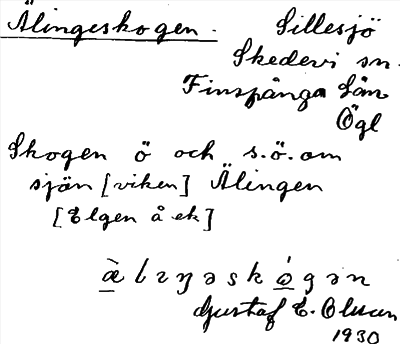 Älingeskogen.
Sillesjö
Skedevi sn.
Finspånga Län
Ögl
Skogen ö och s.ö. om
sjön [viken] Älingen
[Elgen å ek]
æ̀lıŋəskógən
Gustaf E. Olsson
1930